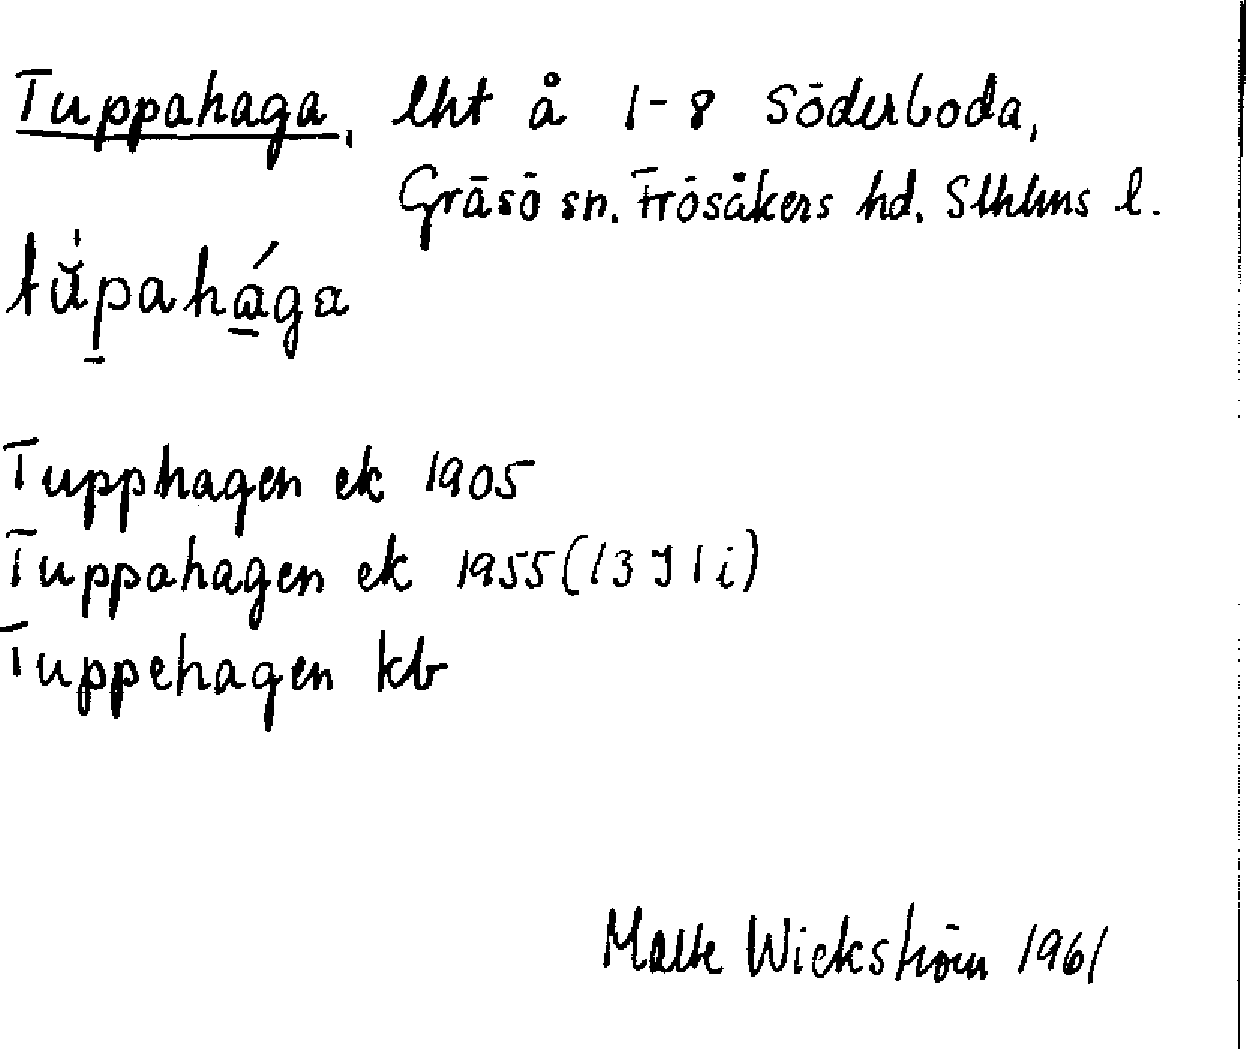 Tuppahaga, lht å 1-8 Söderboda,
Gräsö sn. Frösåkers hd. Sthlms l.
tŭ̀pahága
Tupphagen ek 1905
Tuppahagen ek 1955 (13 I 1 i)
Tuppehagen kb
Malte Wickström 1961